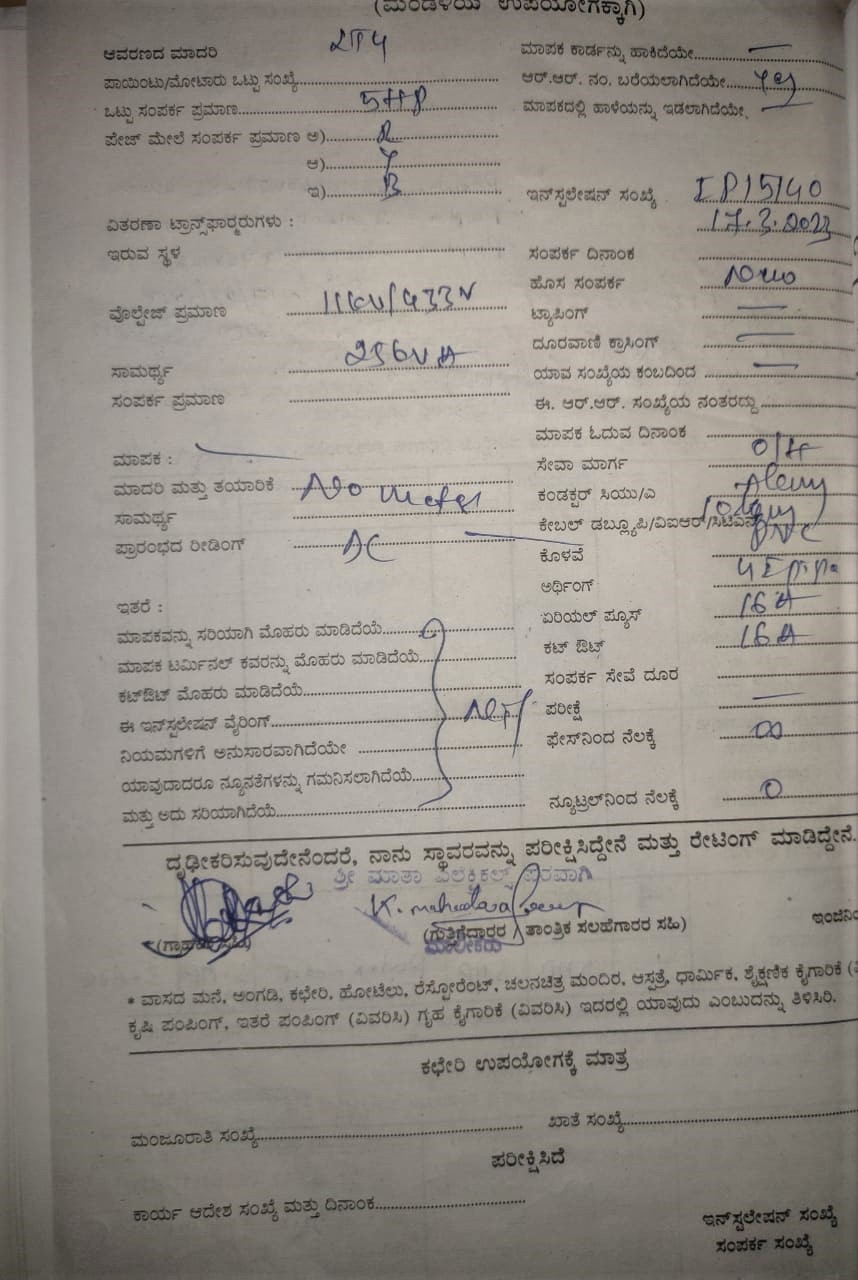 (ಮಂಡಳಿಯ ಉಪಯೋಗಕ್ಕಾಗಿ)
ಆವರಣದ ಮಾದರಿ
ಪಾಯಿಂಟು/ಮೋಟಾರು ಒಟ್ಟು ಸಂಖ್ಯೆ
ಒಟ್ಟು ಸಂಪರ್ಕ ಪ್ರಮಾಣ 5HP
ಪೇಜ್ ಮೇಲೆ ಸಂಪರ್ಕ ಪ್ರಮಾಣ ಅ) R
ಆ) Y
ಇ) B
ವಿತರಣಾ ಟ್ರಾನ್ಸ್‌ಫಾರ್‍ಮರುಗಳು :
ಇರುವ ಸ್ಥಳ
ವೊಲ್ಟೇಜ್ ಪ್ರಮಾಣ 11KV/433V
ಸಾಮರ್ಥ್ಯ
ಸಂಪರ್ಕ ಪ್ರಮಾಣ
ಮಾಪಕ :
ಮಾದರಿ ಮತ್ತು ತಯಾರಿಕೆ No meter
ಸಾಮರ್ಥ್ಯ
ಪ್ರಾರಂಭದ ರೀಡಿಂಗ್ AC
ಇತರೆ :
ಮಾಪಕವನ್ನು ಸರಿಯಾಗಿ ಮೊಹರು ಮಾಡಿದೆಯೆ
ಮಾಪಕ ಟರ್ಮಿನಲ್ ಕವರನ್ನು ಮೊಹರು ಮಾಡಿದೆಯೆ
ಕಟ್‌ಔಟ್ ಮೊಹರು ಮಾಡಿದೆಯೆ
ಈ ಇನ್‌ಸ್ಟಲೇಷನ್ ವೈರಿಂಗ್
ನಿಯಮಗಳಿಗೆ ಅನುಸಾರವಾಗಿದೆಯೇ
ಯಾವುದಾದರೂ ನ್ಯೂನತೆಗಳನ್ನು ಗಮನಿಸಲಾಗಿದೆಯೆ
ಮತ್ತು ಅದು ಸರಿಯಾಗಿದೆಯೆ
ಮಾಪಕ ಕಾರ್ಡನ್ನು ಹಾಕಿದೆಯೇ
ಆರ್.ಆರ್. ನಂ. ಬರೆಯಲಾಗಿದೆಯೇ yes
ಮಾಪಕದಲ್ಲಿ ಹಾಳೆಯನ್ನು ಇಡಲಾಗಿದೆಯೇ
ಇನ್‌ಸ್ಟಲೇಷನ್ ಸಂಖ್ಯೆ IP15140
17.3.2023
ಸಂಪರ್ಕ ದಿನಾಂಕ
ಹೊಸ ಸಂಪರ್ಕ
ಟ್ಯಾಪಿಂಗ್
ದೂರವಾಣಿ ಕ್ರಾಸಿಂಗ್
ಯಾವ ಸಂಖ್ಯೆಯ ಕಂಬದಿಂದ
ಈ. ಆರ್.ಆರ್. ಸಂಖ್ಯೆಯ ನಂತರದ್ದು
ಮಾಪಕ ಓದುವ ದಿನಾಂಕ
ಸೇವಾ ಮಾರ್ಗ O/H
ಕಂಡಕ್ಟರ್ ಸಿಯು/ಎ
ಕೇಬಲ್ ಡಬ್ಲ್ಯೂಪಿ/ವಿಐಆರ್/ಸಿಟಿಎಸ್
ಕೊಳವೆ PVC
ಅರ್ಥಿಂಗ್
ಏರಿಯಲ್ ಫ್ಯೂಸ್ 16 A
ಕಟ್ ಔಟ್ 16 A
ಸಂಪರ್ಕ ಸೇವೆ ದೂರ
ಪರೀಕ್ಷೆ
ಫೇಸ್‌ನಿಂದ ನೆಲಕ್ಕೆ
ನ್ಯೂಟ್ರಲ್‌ನಿಂದ ನೆಲಕ್ಕೆ 0
ದೃಢೀಕರಿಸುವುದೇನೆಂದರೆ, ನಾನು ಸ್ಥಾವರವನ್ನು ಪರೀಕ್ಷಿಸಿದ್ದೇನೆ ಮತ್ತು ರೇಟಿಂಗ್ ಮಾಡಿದ್ದೇನೆ.
ಶ್ರೀ ಮಾತಾ ಎಲೆಕ್ಟ್ರಿಕಲ್ಸ್ ಪರವಾಗಿ
(ಗುತ್ತಿಗೆದಾರರ / ತಾಂತ್ರಿಕ ಸಲಹೆಗಾರರ ಸಹಿ)
ಮಾಲೀಕರು
* ವಾಸದ ಮನೆ, ಅಂಗಡಿ, ಕಛೇರಿ, ಹೋಟೆಲು, ರೆಸ್ಟೋರೆಂಟ್, ಚಲನಚಿತ್ರ ಮಂದಿರ, ಆಸ್ಪತ್ರೆ, ಧಾರ್ಮಿಕ, ಶೈಕ್ಷಣಿಕ ಕೈಗಾರಿಕೆ
ಕೃಷಿ ಪಂಪಿಂಗ್, ಇತರೆ ಪಂಪಿಂಗ್ (ವಿವರಿಸಿ) ಗೃಹ ಕೈಗಾರಿಕೆ (ವಿವರಿಸಿ) ಇದರಲ್ಲಿ ಯಾವುದು ಎಂಬುದನ್ನು ತಿಳಿಸಿರಿ.
ಕಛೇರಿ ಉಪಯೋಗಕ್ಕೆ ಮಾತ್ರ
ಮಂಜೂರಾತಿ ಸಂಖ್ಯೆ ಖಾತೆ ಸಂಖ್ಯೆ
ಪರೀಕ್ಷಿಸಿದೆ
ಕಾರ್ಯ ಆದೇಶ ಸಂಖ್ಯೆ ಮತ್ತು ದಿನಾಂಕ
ಇನ್‌ಸ್ಟಲೇಷನ್ ಸಂಖ್ಯೆ
ಸಂಪರ್ಕ ಸಂಖ್ಯೆ